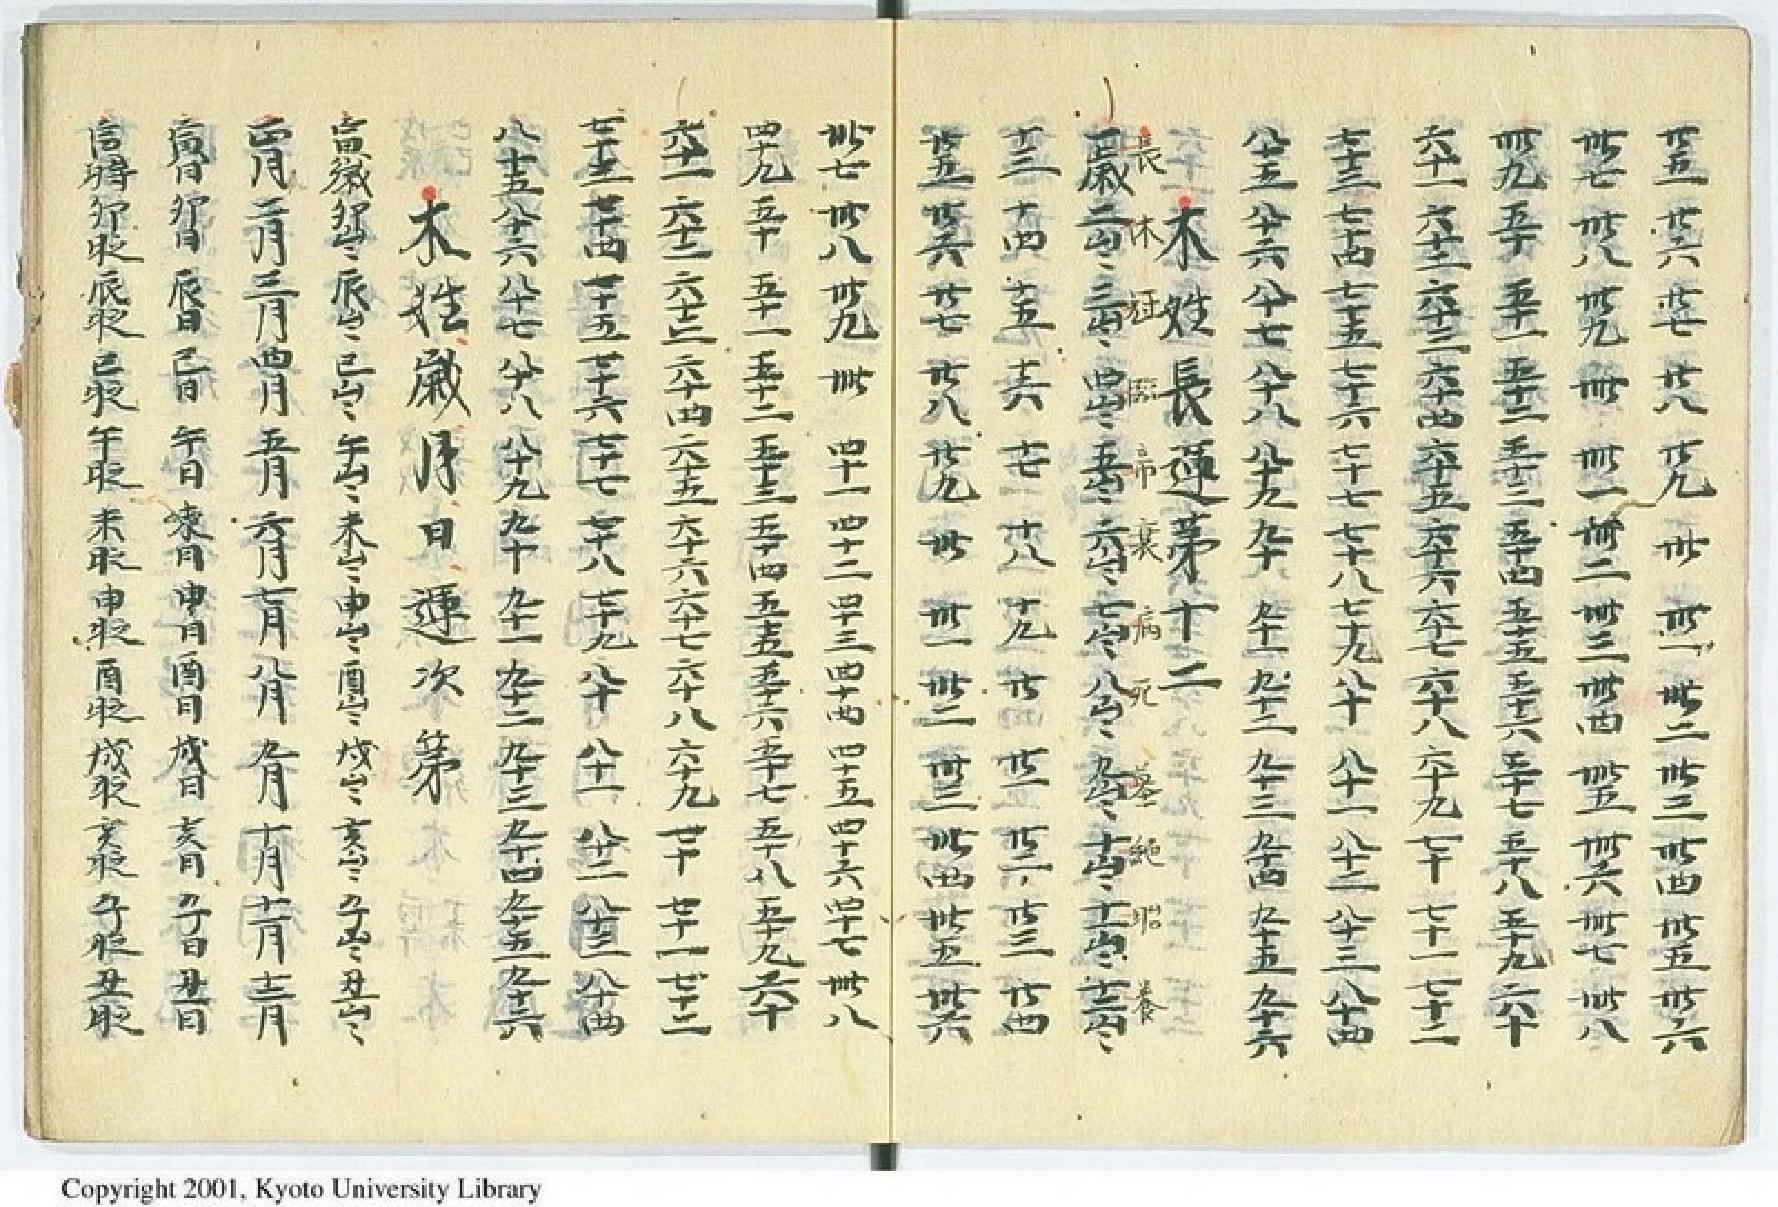 廿五 廿六 廿七 廿八 廿九 卅 卅一 卅二 卅三 卅四 卅五 卅六
卅七 卅八 卅九 卌 卌一 卌二 卌三 卌四 卌五 卌六 卌七 卌八
卌九 五十 五十一 五十二 五十三 五十四 五十五 五十六 五十七 五十八 五十九 六十
六十一 六十二 六十三 六十四 六十五 六十六 六十七 六十八 六十九 七十 七十一 七十二
七十三 七十四 七十五 七十六 七十七 七十八 七十九 八十 八十一 八十二 八十三 八十四
八十五 八十六 八十七 八十八 八十九 九十 九十一 九十二 九十三 九十四 九十五 九十六
木姓長運苐十二
長 休 冠 臨 帝 衰 病 死 墓 絶 胎 養
一歳 二 三 四 五 六 七 八 九 十 十一 十二
十三 十四 十五 十六 十七 十八 十九 廿 廿一 廿二 廿三 廿四
廿五 廿六 廿七 廿八 廿九 卅 卅一 卅二 卅三 卅四 卅五 卅六
卅七 卅八 卅九 卌 四十一 四十二 四十三 四十四 四十五 四十六 四十七 卌八
四十九 五十 五十一 五十二 五十三 五十四 五十五 五十六 五十七 五十八 五十九 六十
六十一 六十二 六十三 六十四 六十五 六十六 六十七 六十八 六十九 七十 七十一 七十二
七十三 七十四 七十五 七十六 七十七 七十八 七十九 八十 八十一 八十二 八十三 八十四
八十五 八十六 八十七 八十八 八十九 九十 九十一 九十二 九十三 九十四 九十五 九十六
木姓歳月日運次苐
寅歳 卯 辰 巳 午 未 申 酉 戌 亥 子 丑
正月 二月 三月 四月 五月 六月 七月 八月 九月 十月 十一月 十二月
寅日 卯日 辰日 巳日 午日 未日 申日 酉日 戌日 亥日 子日 丑日
卯 辰 巳 午 未 申 酉 戌 亥 子 丑
Copyright 2001, Kyoto University Library